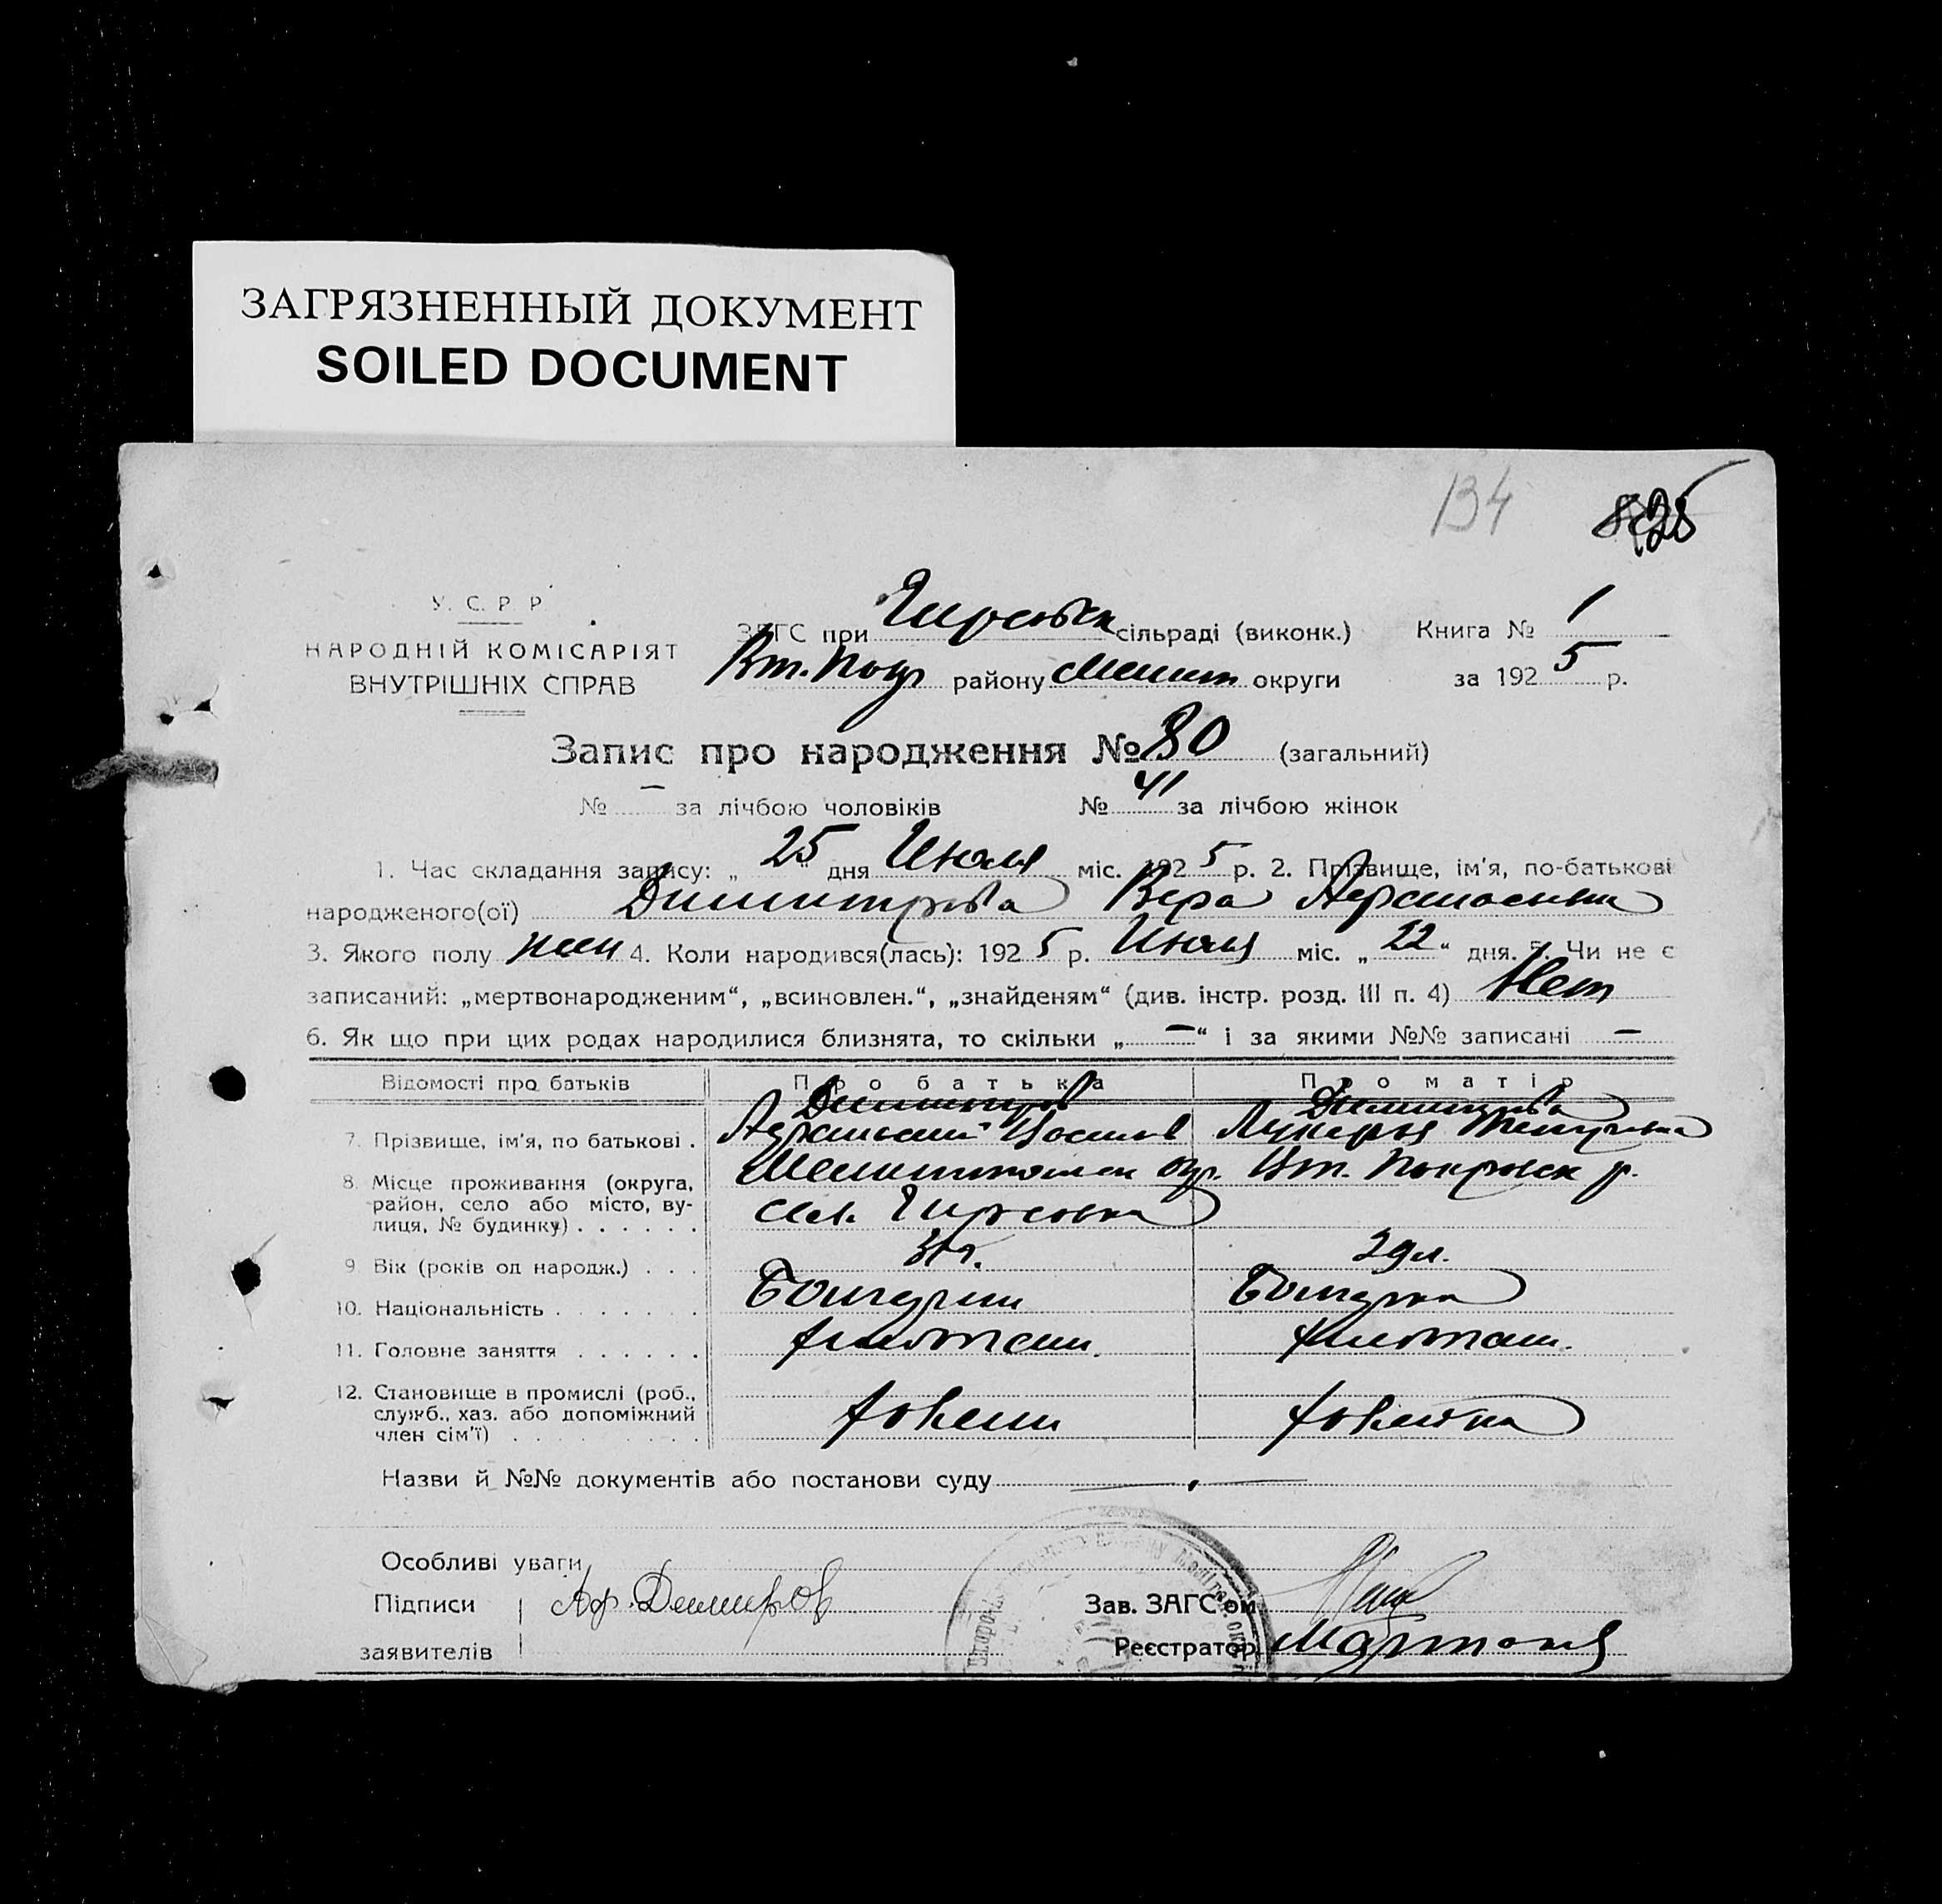 ЗАГРЯЗНЕННЫЙ ДОКУМЕНТ
SOILED DOCUMENT
134
У. С. Р. Р.
НАРОДНІЙ КОМІСАРІЯТ
ВНУТРІШНІХ СПРАВ
ЗАГС при Гирсовск сільраді (виконк.) Книга № 1
Вт. Покр району Мелит округи за 1925 р.
Запис про народження № 80 (загальний)
№ – за лічбою чоловіків № 41 за лічбою жінок
1. Час складання запису: „25" дня Июля міс. 1925 р. 2. Прізвище, ім'я, по-батькові
народженого(ої) Димитрова Вера Афанасьевна
3. Якого полу жен 4. Коли народився(лась): 1925 р. Июля міс. „22" дня. 5. Чи не є
записаний: „мертвонародженим", „всиновлен.", „знайденям" (див. інстр. розд. III п. 4) Нет
6. Як що при цих родах народилися близнята, то скільки „–" і за якими №№ записані –
Відомості про батьків Про батька Про матір
Димитров Димитрова
7. Прізвище, ім'я, по батькові . Афанасий Васильев Лукерья
8. Місце проживання (округа, район, село або місто, вулиця, № будинку) . . . . . . Мелитопольск окр. Вт. Покровск р.
сел. Гирсовка
9. Вік (років од народж.) . . . 31 г. 29 л.
10. Національність . . . . . . . Болгарин Болгарка
11. Головне заняття . . . . . . хлебопаш. хлебопаш.
12. Становище в промислі (роб., служб., хаз. або допоміжний член сім'ї) . . . . . . . . . хозяин хозяйка
Назви й №№ документів або постанови суду
Особливі уваги
Підписи Аф. Димитров Зав. ЗАГС'ом
заявителів Реєстратор